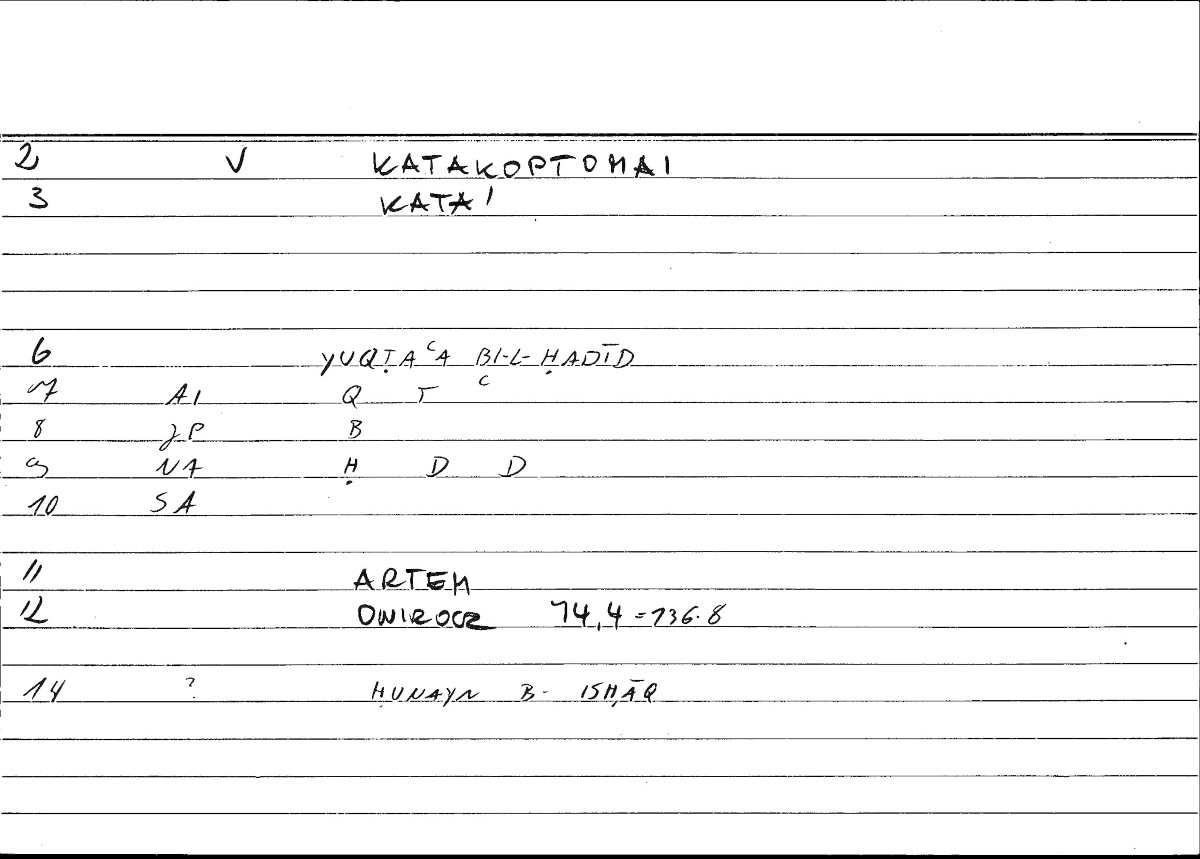 2 V KATAKOPTOMAI
3 KATA'
6 YUQṬAʿA BI-L-ḤADĪD
7 AI Q Ṭ ʿ
8 JP B
9 NA Ḥ D D
10 SA
11 ARTEM
12 ONIROCR 74,4 = 136.8
14 ? ḤUNAYN B- ISḤĀQ